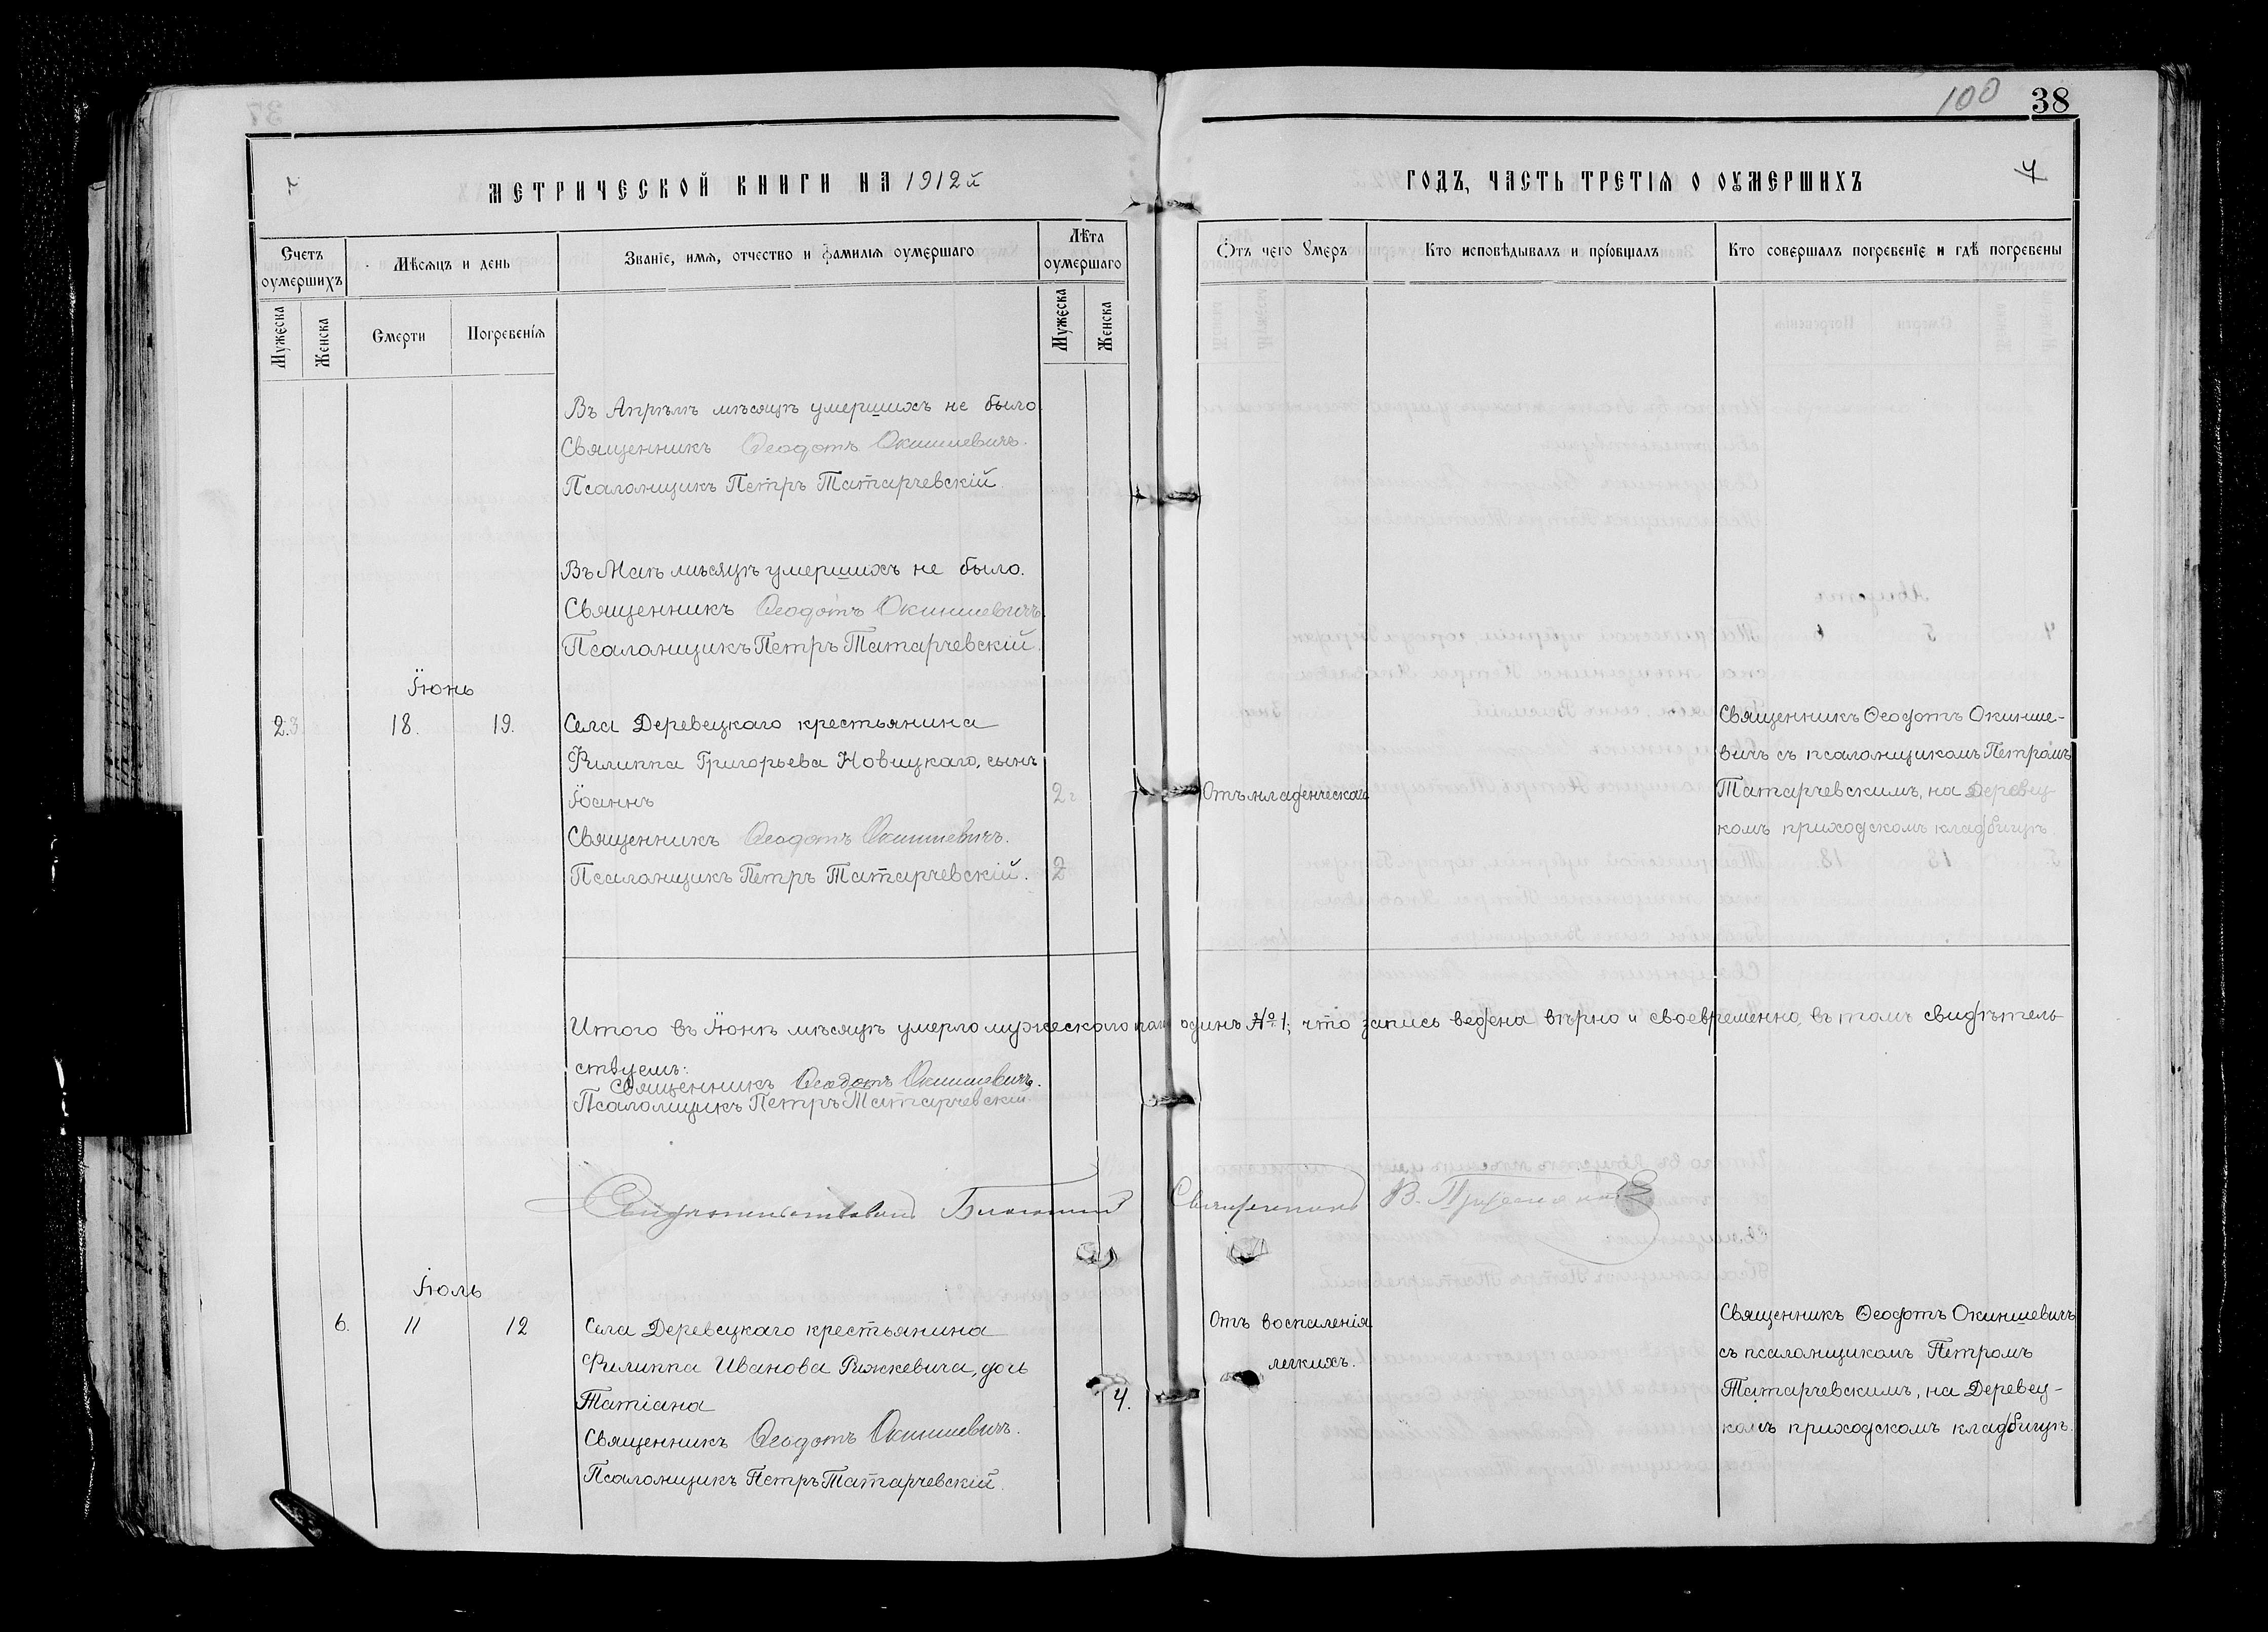 100 38
МЕТРИЧЕСКОЙ КНИГИ НА 1912й
ГОДЪ, ЧАСТЬ ТРЕТІЯ О ОУМЕРШИХЪ
Счетъ оумершихъ
Мѣсяцъ и день
Званіе, имя, отчество и фамилія оумершаго
Лѣта оумершаго
Отъ чего умеръ
Кто исповѣдывалъ и пріобщалъ
Кто совершалъ погребеніе и гдѣ погребены
Мужеска
Женска
Смерти
Погребенія
Мужеска
Женска
Въ Апрѣлѣ мѣсяцѣ умершихъ не было.
Священникъ Ѳеодотъ Окиншевичъ.
Псаломщикъ Петръ Татарчевскій.
Въ Маѣ мѣсяцѣ умершихъ не было.
Священникъ Ѳеодотъ Окиншевичъ.
Псаломщикъ Петръ Татарчевскій.
Іюнь
18. 19. Села Деревецкаго крестьянина
Филиппа Григорьева Новицкаго, сынъ
Іоаннъ 2г
Священникъ Ѳеодотъ Окиншевичъ.
Псаломщикъ Петръ Татарчевскій. 2
Отъ младенческаго
Священникъ Ѳеодотъ Окинше-
вичъ съ псаломщикомъ Петромъ
Татарчевскимъ, на Деревец-
комъ приходскомъ кладбищѣ.
Итого въ Іюнѣ мѣсяцѣ умерло мужескаго пола одинъ №1; что запись ведена вѣрно и своевременно, въ томъ свидѣтель
ствуемъ:
Священникъ Ѳеодотъ Окиншевичъ.
Псаломщикъ Петръ Татарчевскій
Свидѣтельствовалъ Благочинный Священникъ В.
Іюль
6. 11 12 Села Деревецкаго крестьянина
Филиппа Иванова Рижкевича, дочь
Татіана 4.
Священникъ Ѳеодотъ Окиншевичъ.
Псаломщикъ Петръ Татарчевскій.
Отъ воспаленія
легкихъ.
Священникъ Ѳеодотъ Окиншевичъ
съ псаломщикомъ Петромъ
Татарчевскимъ, на Деревец-
комъ приходскомъ кладбищѣ.